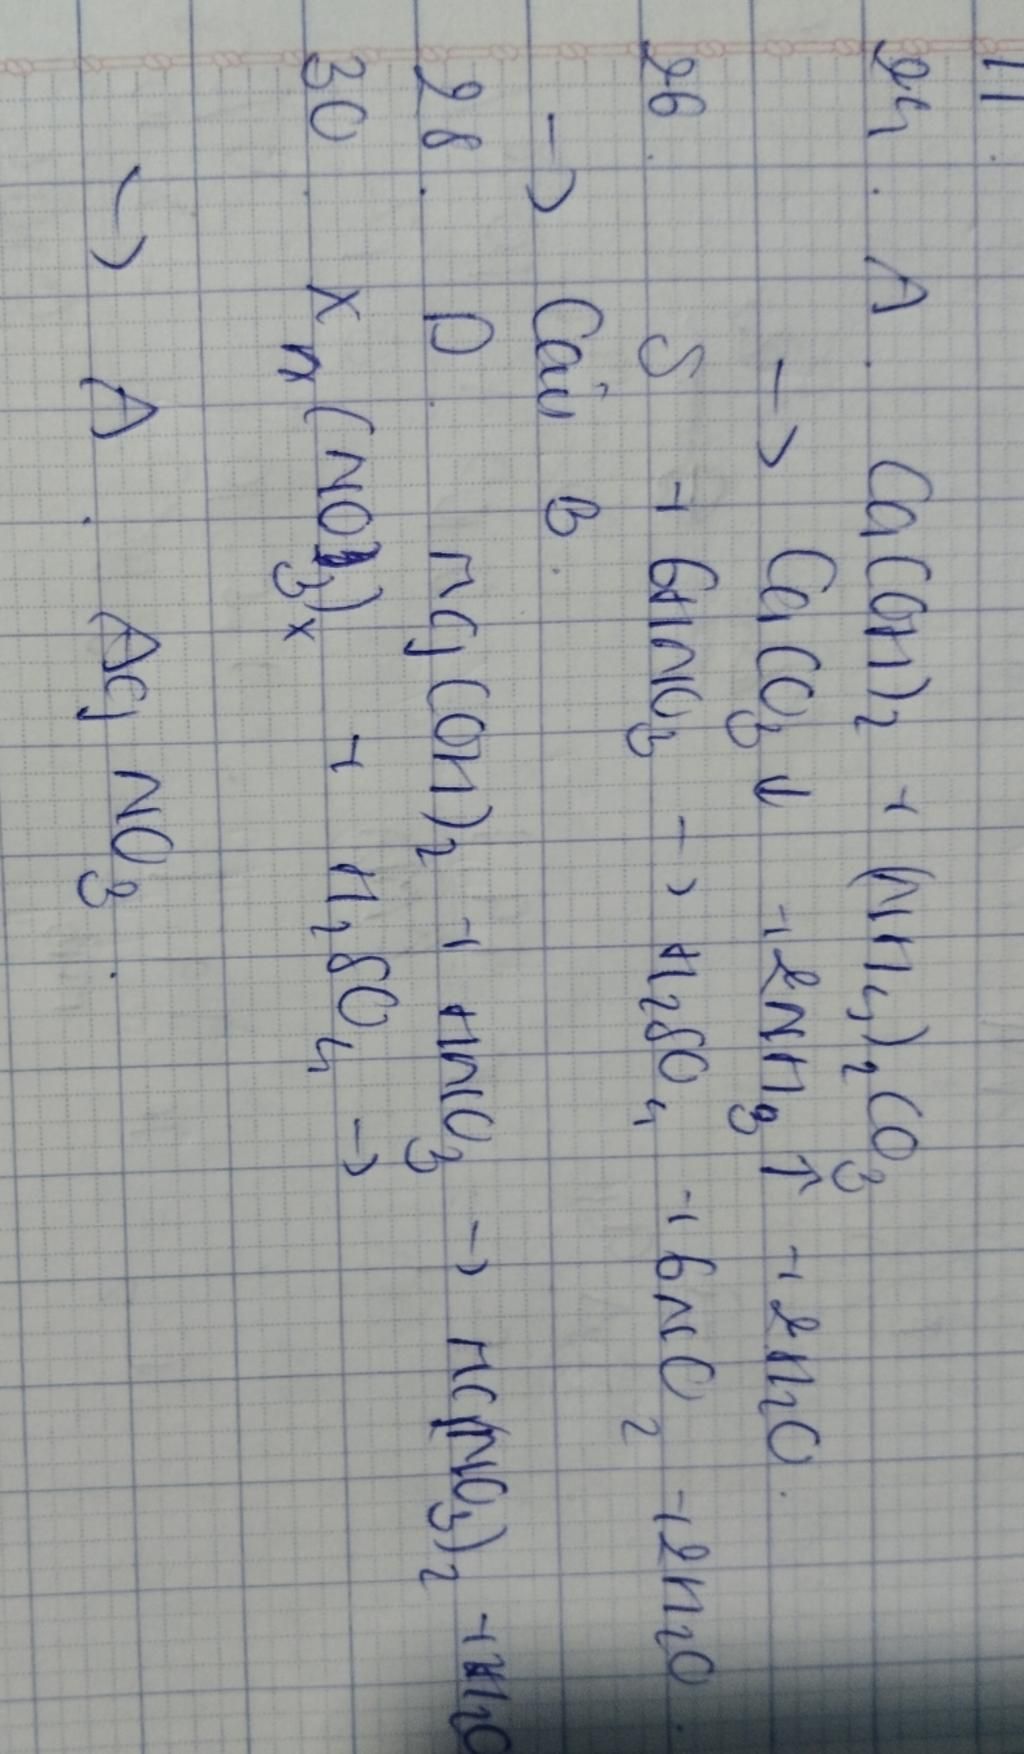 11.
24. A. Ca(OH)2 + (NH4)2CO3
→ CaCO3↓ + 2NH3↑ + 2H2O.
26. S + 6HNO3 → H2SO4 + 6NO2 + 2H2O.
→ Câu B.
28. D. Mg(OH)2 + HNO3 → Mg(NO3)2 + H2O
30. X n(NO3)x + H2SO4 →
→ A. AgNO3.